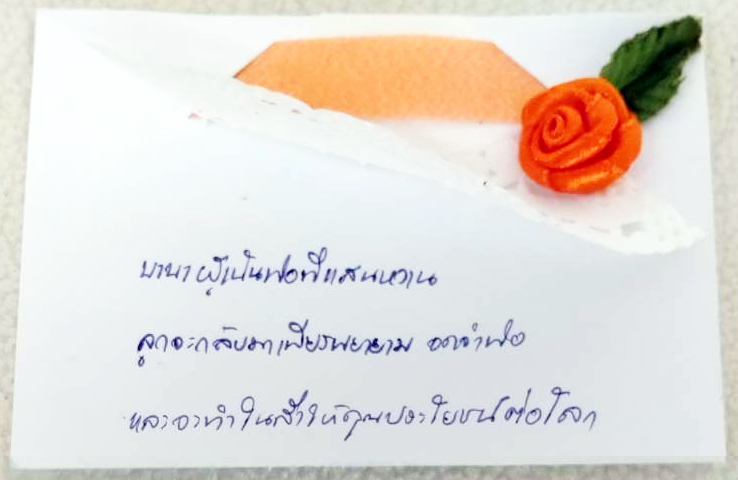 บาบา ผู้เป็นพ่อที่แสนหวาน
ลูกจะกลับมาเพียรพยายาม จดจำพ่อ
และจะทำในสิ่งให้คุณประโยชน์ต่อโลก